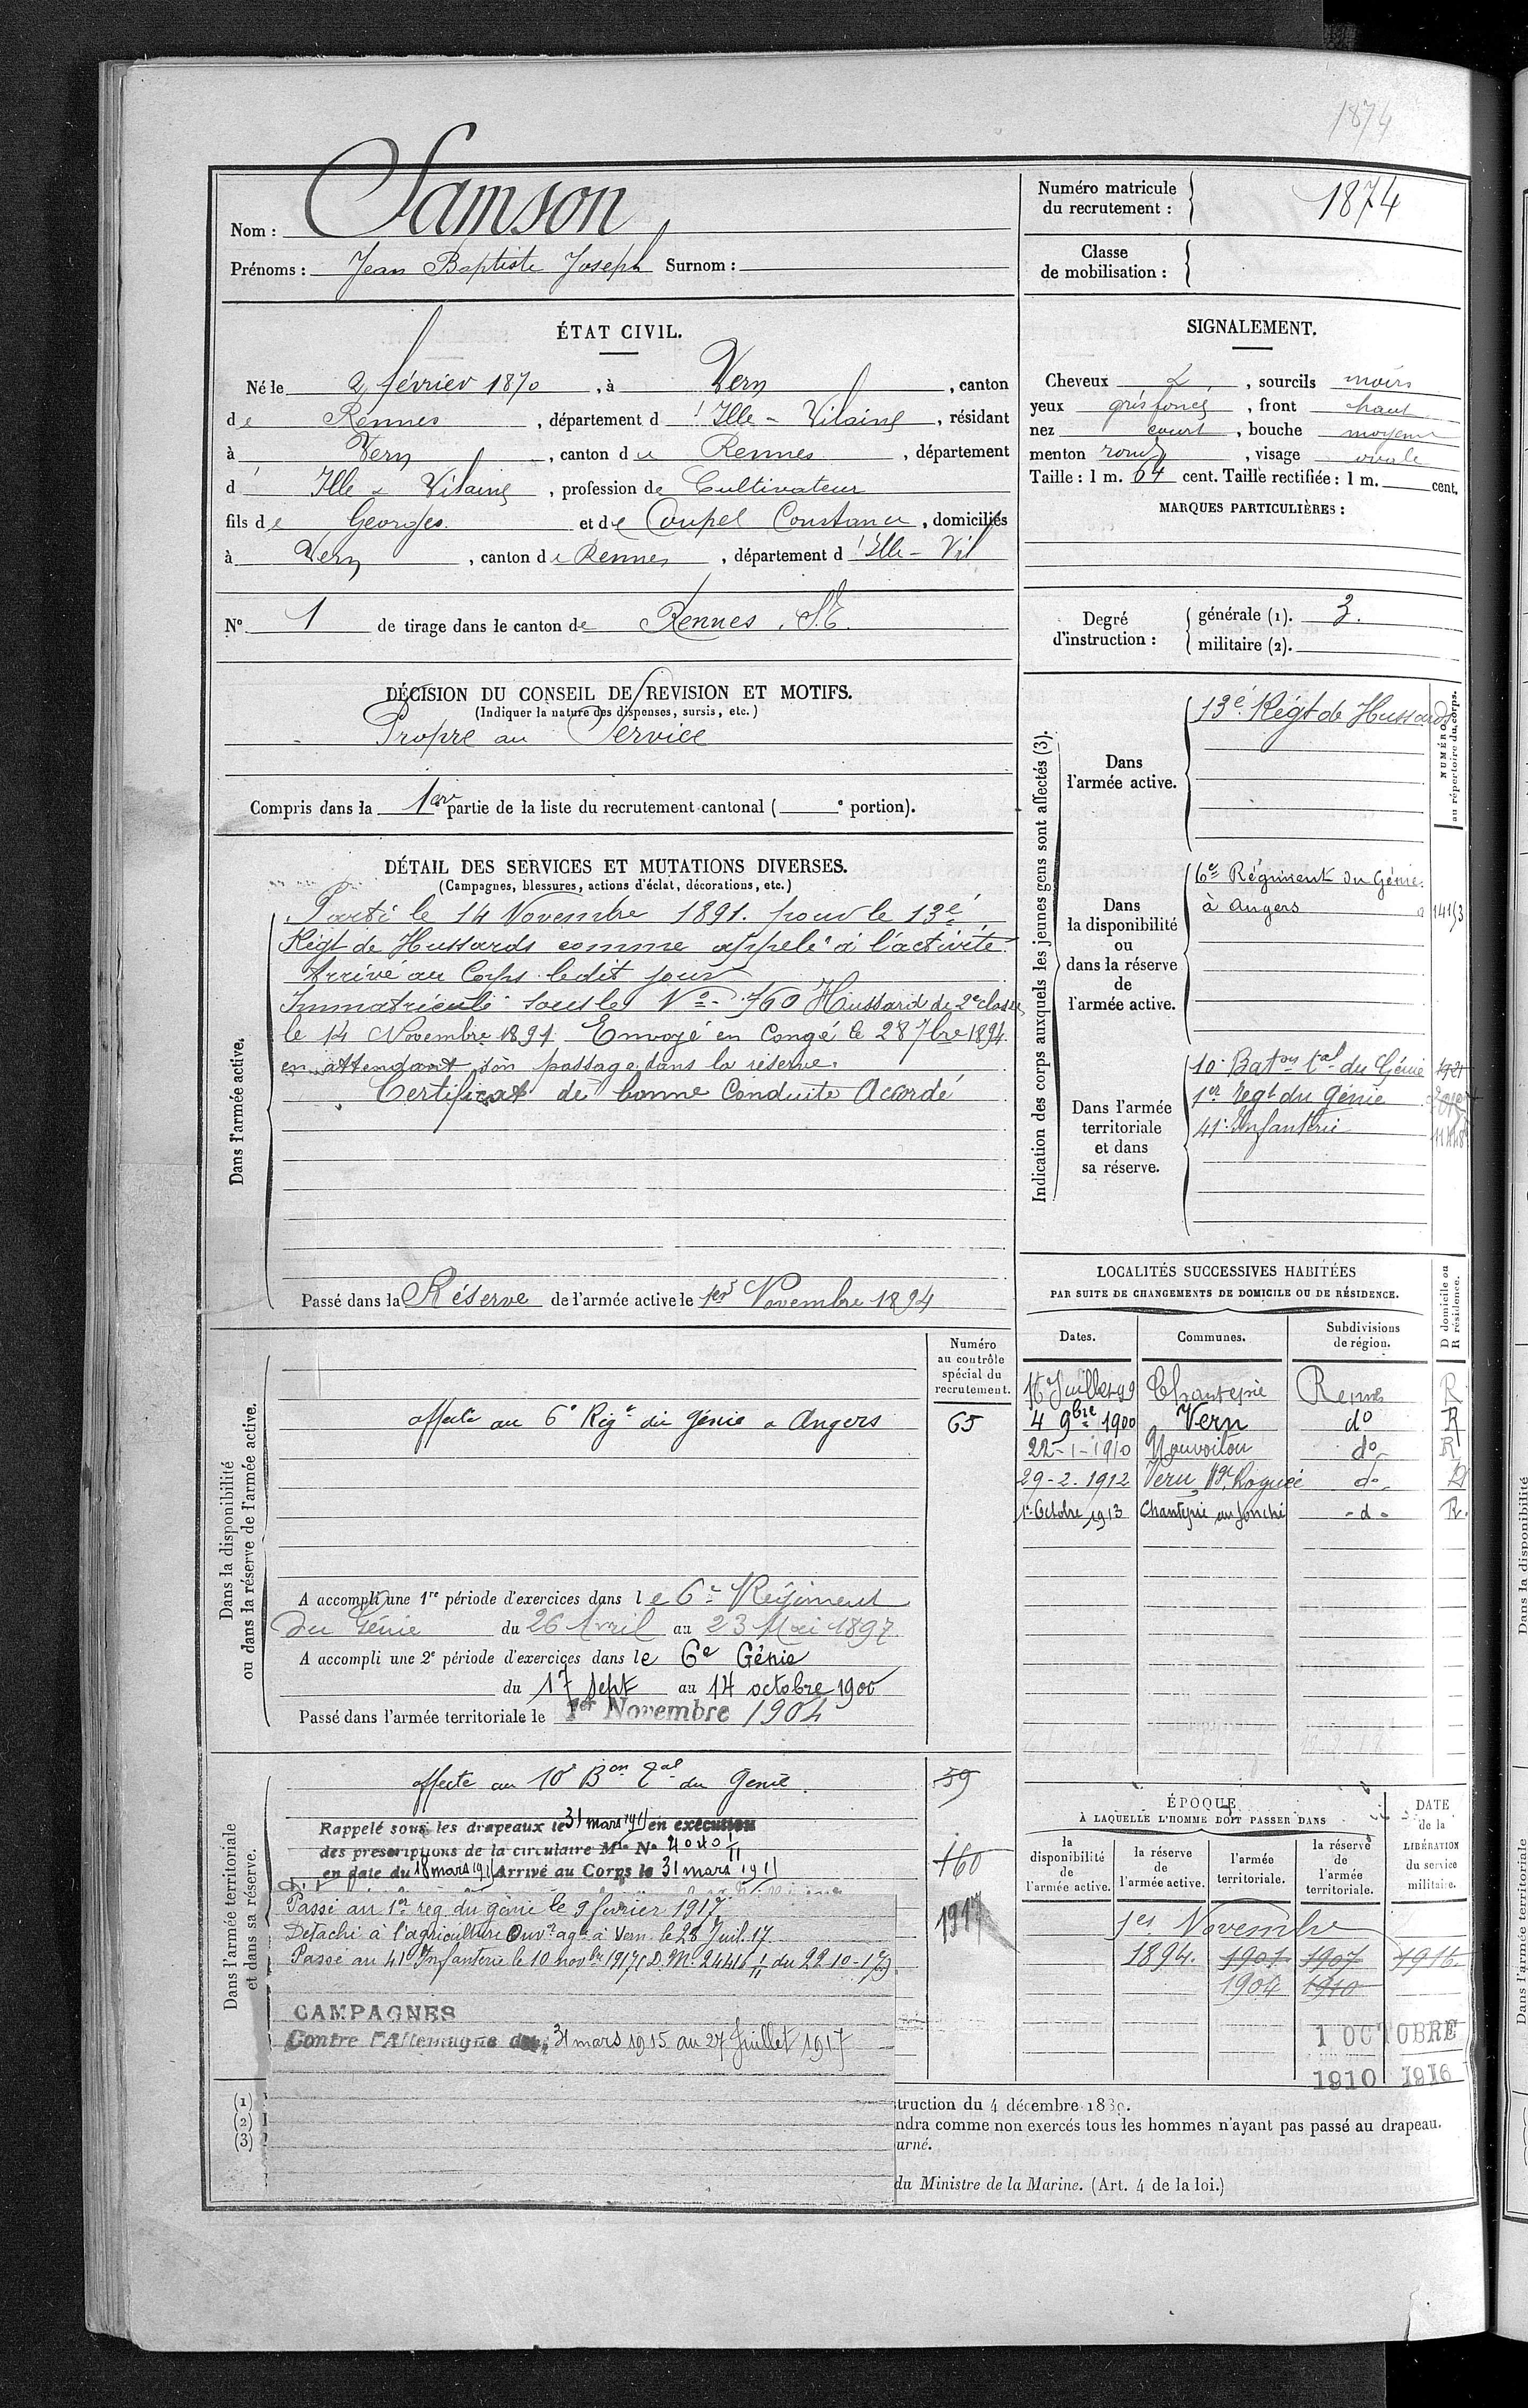 1874
Nom : Samson
Prénoms : Jean Baptiste Joseph Surnom :
Numéro matricule du recrutement : 1874
Classe de mobilisation :
ÉTAT CIVIL.
Né le 2 février 1870, à Vern, canton
de Rennes, département d'Ille-Vilaine, résidant
à Vern, canton de Rennes, département
d' Ille & Vilaine, profession de Cultivateur
fils de Georges et de Coupel Constance, domiciliés
à Vern, canton de Rennes, département d'Ille-Vil
N° 1 de tirage dans le canton de Rennes S.E.
SIGNALEMENT.
Cheveux &, sourcils noirs
yeux gris foncé, front haut
nez court, bouche moyenne
menton rond, visage ovale
Taille : 1 m. 64 cent. Taille rectifiée : 1 m. cent.
MARQUES PARTICULIÈRES :
Degré d'instruction : générale (1). 3.
militaire (2).
DÉCISION DU CONSEIL DE REVISION ET MOTIFS.
(Indiquer la nature des dispenses, sursis, etc.)
Propre au Service
Compris dans la 1ere partie de la liste du recrutement cantonal ( e portion).
DÉTAIL DES SERVICES ET MUTATIONS DIVERSES.
(Campagnes, blessures, actions d'éclat, décorations, etc.)
Dans l'armée active.
Parti le 14 Novembre 1891. pour le 13e
Régt de Hussards comme appelé à l'activité
Arrivé au Corps ledit jour
Immatriculé sous le No 760 Hussard de 2e classe
le 14 Novembre 1891 Envoyé en Congé le 28 7bre 1894
en attendant son passage dans la réserve.
Certificat de bonne Conduite Accordé
Passé dans la Réserve de l'armée active le 1er Novembre 1894
Indication des corps auxquels les jeunes gens sont affectés (3).
NUMÉRO au répertoire du corps.
Dans l'armée active.
13e Régt de Hussards
Dans la disponibilité ou dans la réserve de l'armée active.
6e Régiment du Génie
à Angers
Dans l'armée territoriale et dans sa réserve.
10e Baton tal du Génie
1er Regt du Génie
41e Infanterie
LOCALITÉS SUCCESSIVES HABITÉES
PAR SUITE DE CHANGEMENTS DE DOMICILE OU DE RÉSIDENCE.
Dates. Communes. Subdivisions de région. D domicile ou R résidence.
16 Juillet 99 Chantepie Rennes R
4 9bre 1900 Vern do R
22-1-1910 Nouvoitou do R
29-2-1912 Vern do R
1er Octobre 1913 Chantepie -d- R.
Dans la disponibilité ou dans la réserve de l'armée active.
Numéro au contrôle spécial du recrutement.
affecté au 6e Régt du génie a Angers 65
A accompli une 1re période d'exercices dans le 6e Régiment
du Génie du 26 Avril au 23 Mai 1897.
A accompli une 2e période d'exercices dans le 6e Génie
du 17 sept au 14 octobre 1900
Passé dans l'armée territoriale le 1er Novembre 1904
Dans l'armée territoriale et dans sa réserve.
affecté au 10e Bon Tal du Génie. 59
Rappelé sous les drapeaux le 31 mars 1911 en exécution
des prescriptions de la circulaire Mlle No
en date du 18 mars 1911 Arrivé au Corps le 31 mars 1911
160
Passé au 1er reg du génie le 9 février 1917.
Détaché à l'agriculture Ouvr agle à Vern le 28 Juil. 17
Passé au 41e Infanterie le 10 novbre 1917 (D.M. 24416 I/II du 22-10-17)
CAMPAGNES
Contre l'Allemagne du 31 mars 1915 au 27 Juillet 1917
ÉPOQUE
À LAQUELLE L'HOMME DOIT PASSER DANS
la disponibilité de l'armée active.
la réserve de l'armée active.
l'armée territoriale.
la réserve de l'armée territoriale.
DATE de la LIBÉRATION du service militaire.
1er Novembre
1894. 1901 1907 1916.
1904 1910
1 OCTOBRE
1910 1916
(1)
(2)
(3)
truction du 4 décembre 1889.
ndra comme non exercés tous les hommes n'ayant pas passé au drapeau.
urné.
du Ministre de la Marine. (Art. 4 de la loi.)
Dans la disponibilité
Dans l'armée territoriale